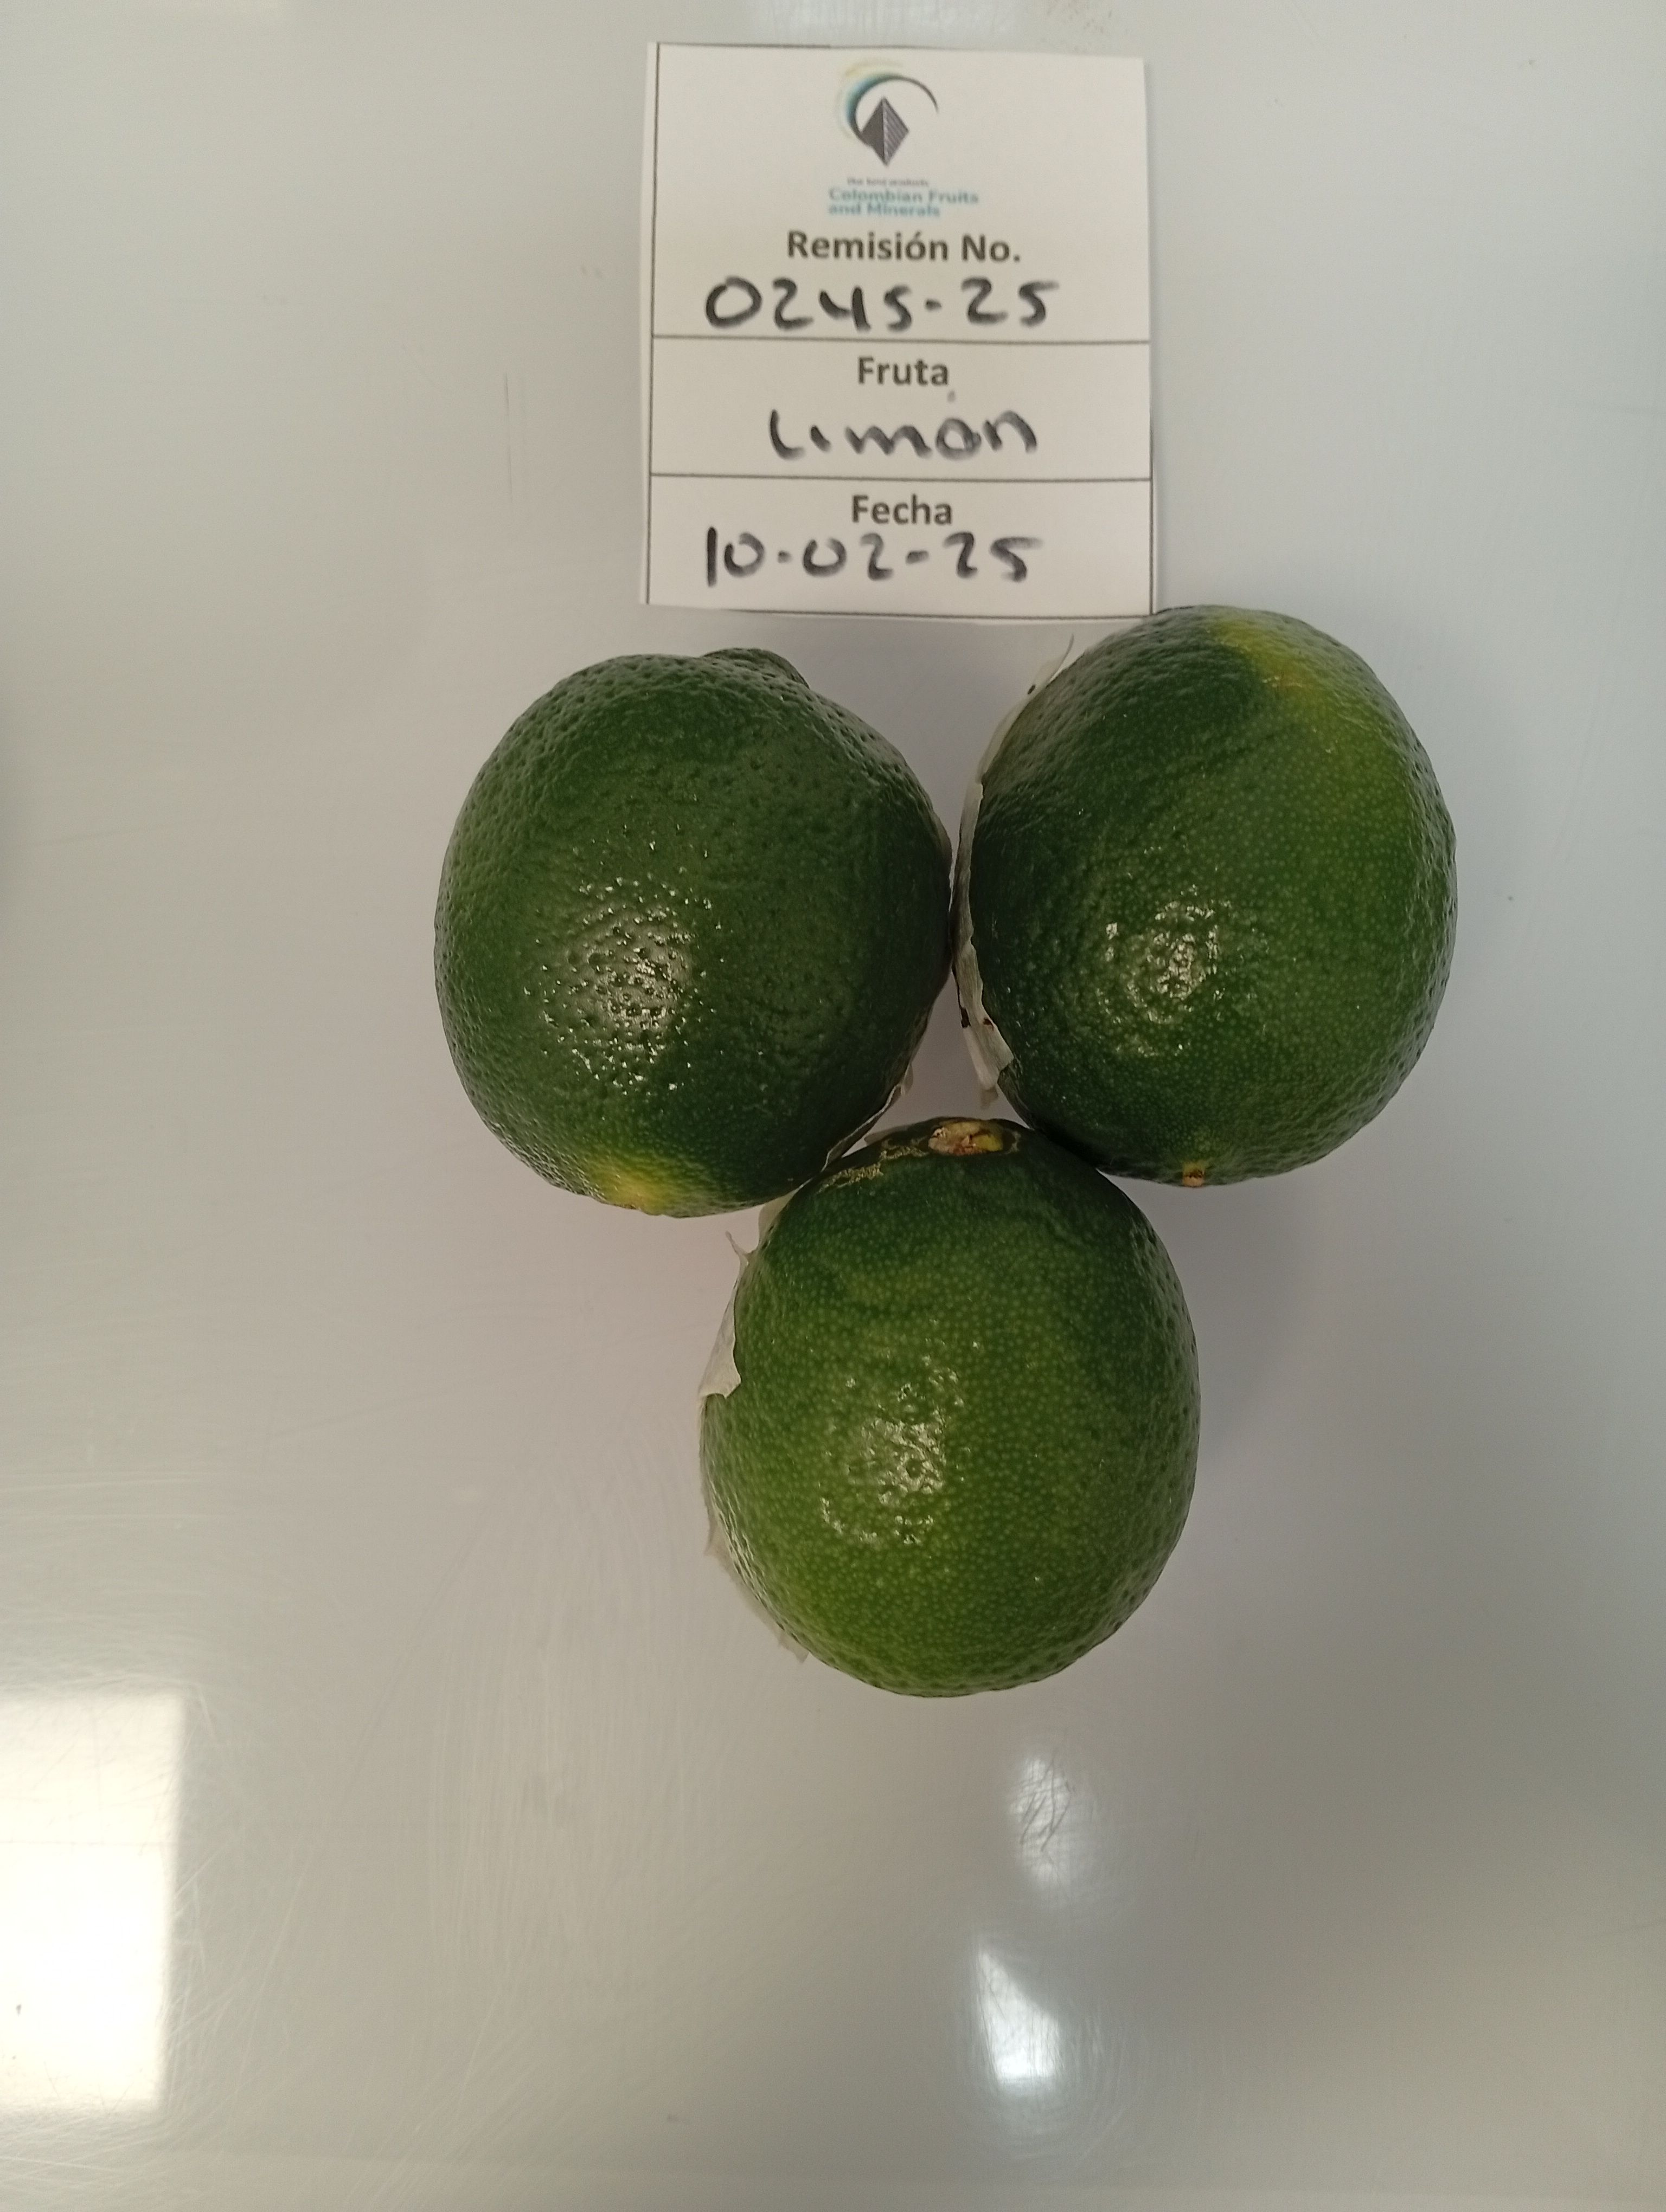 The best products
Colombian Fruits
and Minerals
Remisión No.
0245-25
Fruta
Limón
Fecha
10-02-25